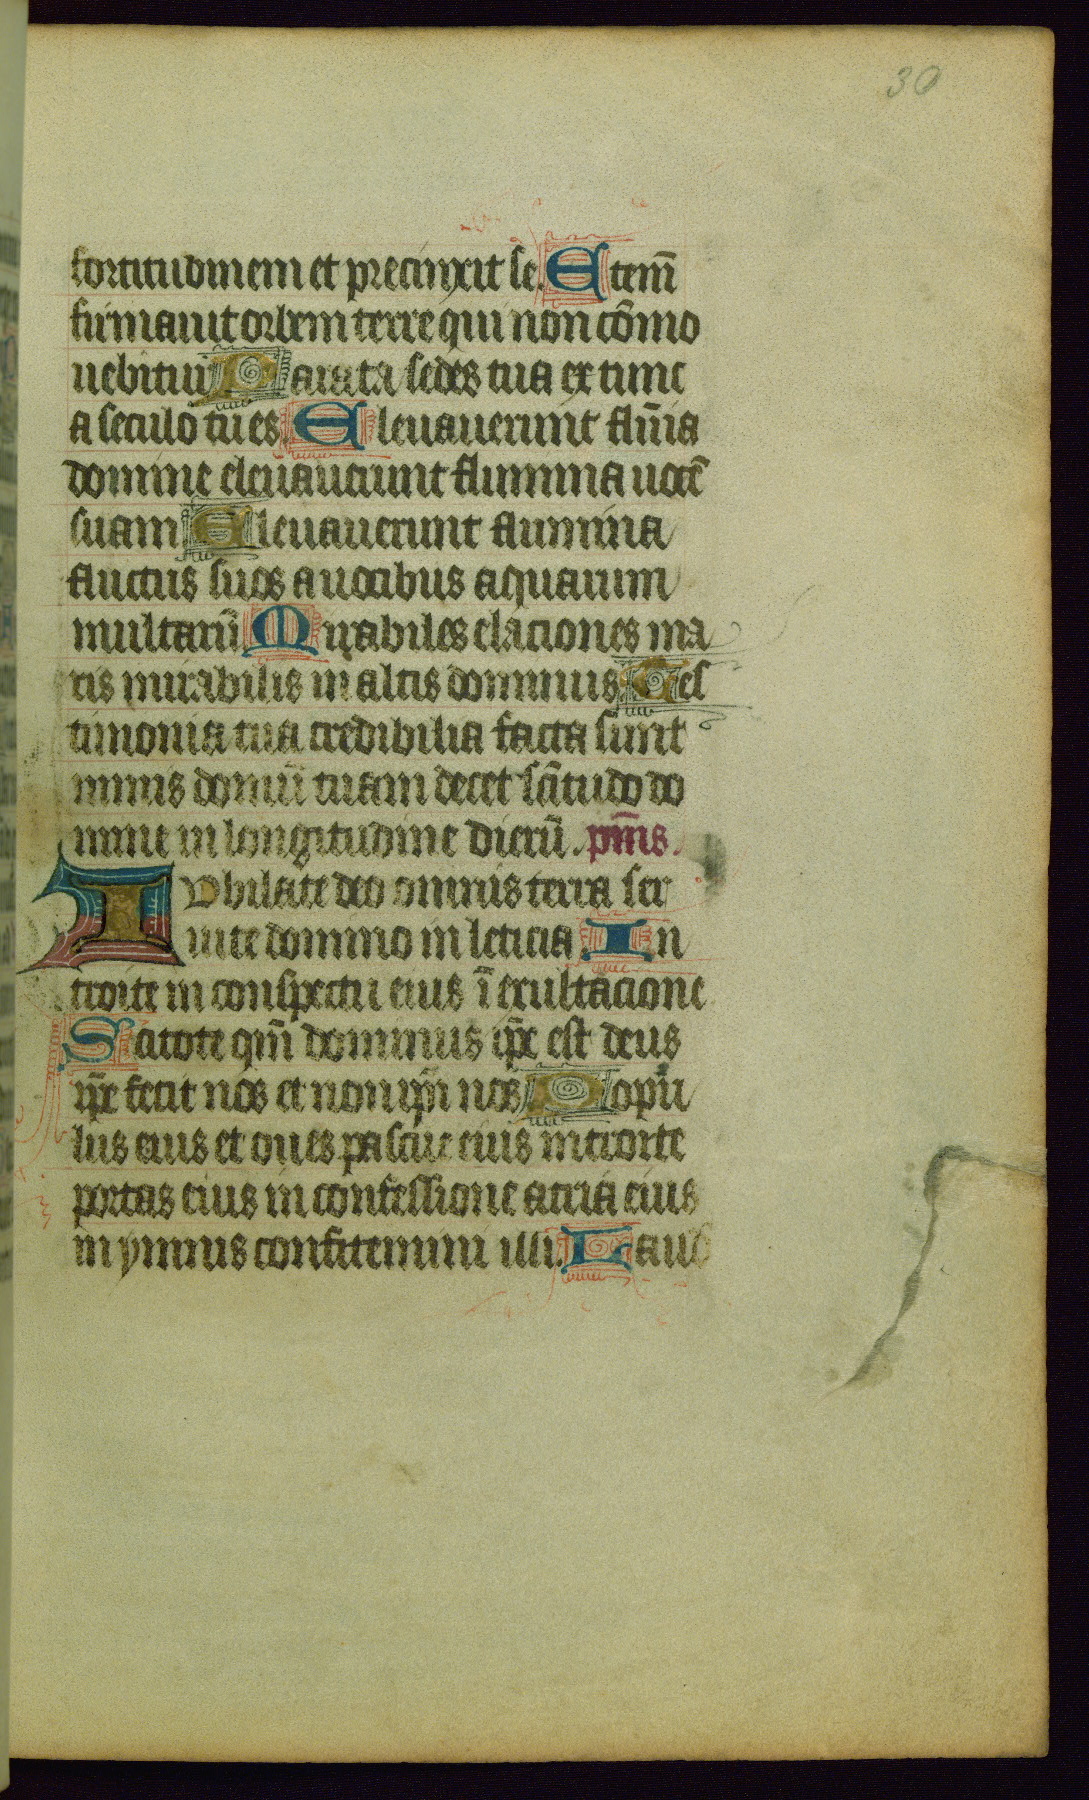 30
fortitudinem et precinxit se. Etem̄
firmauit orbem terre qui non cōmo
uebitur Parata sedes tua ex tunc
a seculo tu es. Eleuauerunt flum̄ia
domine eleuauerunt flumina uocē
suam Eleuauerunt flumina
fluctus suos a uocibus aquarum
multarū Mirabiles elaciones ma
ris mirabilis in altis dominus Tes
timonia tua credibilia facta sunt
nimis domū tuam decet sc̄itudo do
mine in longitudine dierū. pm̄s.
Iubilate deo omnis terra ser
uite domino in leticia. In
troite in conspectu eius ī exultacione
Scitote qm̄ dominus ip̄e est deus
ip̄e fecit nos et non ip̄i nos Popu
lus eius et oues pascue eius introite
portas eius in confessione atria eius
in ymnis confitemini illi. Laud